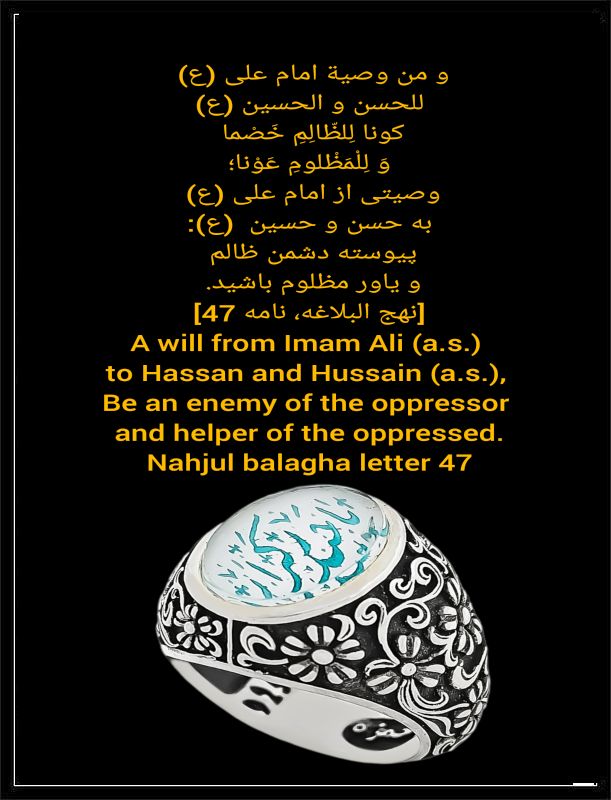 و من وصیة امام علی (ع)
للحسن و الحسین (ع)
کونا لِلظّالِمِ خَصْما
وَ لِلْمَظْلومِ عَوْنا؛
وصیتی از امام علی (ع)
به حسن و حسین (ع):
پیوسته دشمن ظالم
و یاور مظلوم باشید.
[نهج البلاغه، نامه 47]
A will from Imam Ali (a.s.)
to Hassan and Hussain (a.s.),
Be an enemy of the oppressor
and helper of the oppressed.
Nahjul balagha letter 47